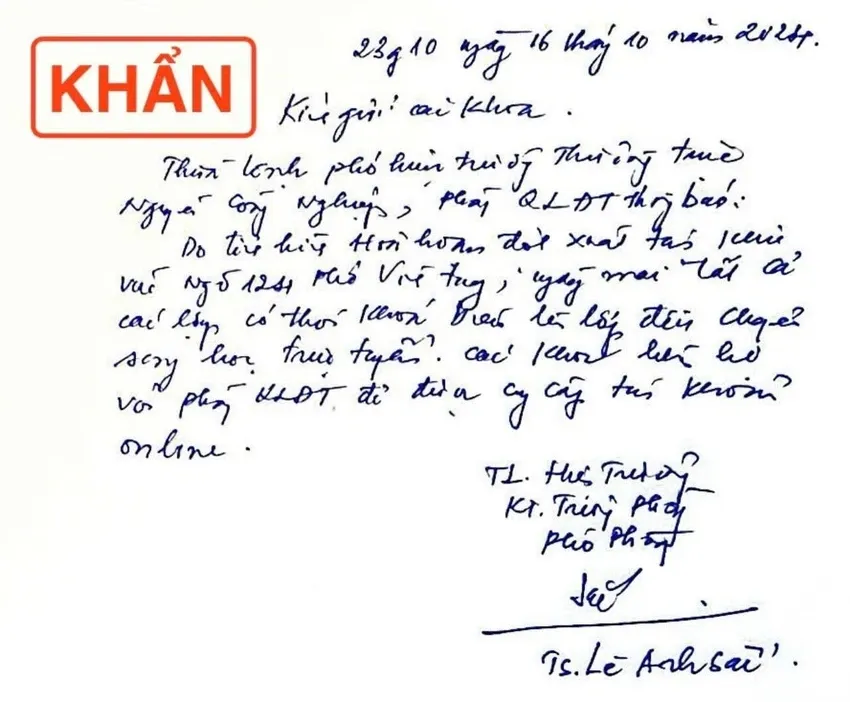 KHẨN
23g10 ngày 16 tháng 10 năm 2024.
Kính gửi các Khoa.
Thừa lệnh phó hiệu trưởng Thường trực
Nguyễn Công Nghiệp, phòng QLĐT thông báo:
Do tình hình Hoả hoạn đột xuất tại khu
vực Ngõ 124 phố Vĩnh Tuy, ngày mai tất cả
các lớp có thời khoá biểu lên lớp đều chuyển
sang học trực tuyến. Các Khoa liên hệ
với phòng QLĐT để được cung cấp tài khoản
online.
TL. Hiệu Trưởng
KT. Trưởng phòng
Phó Phòng
Ts. Lê Anh